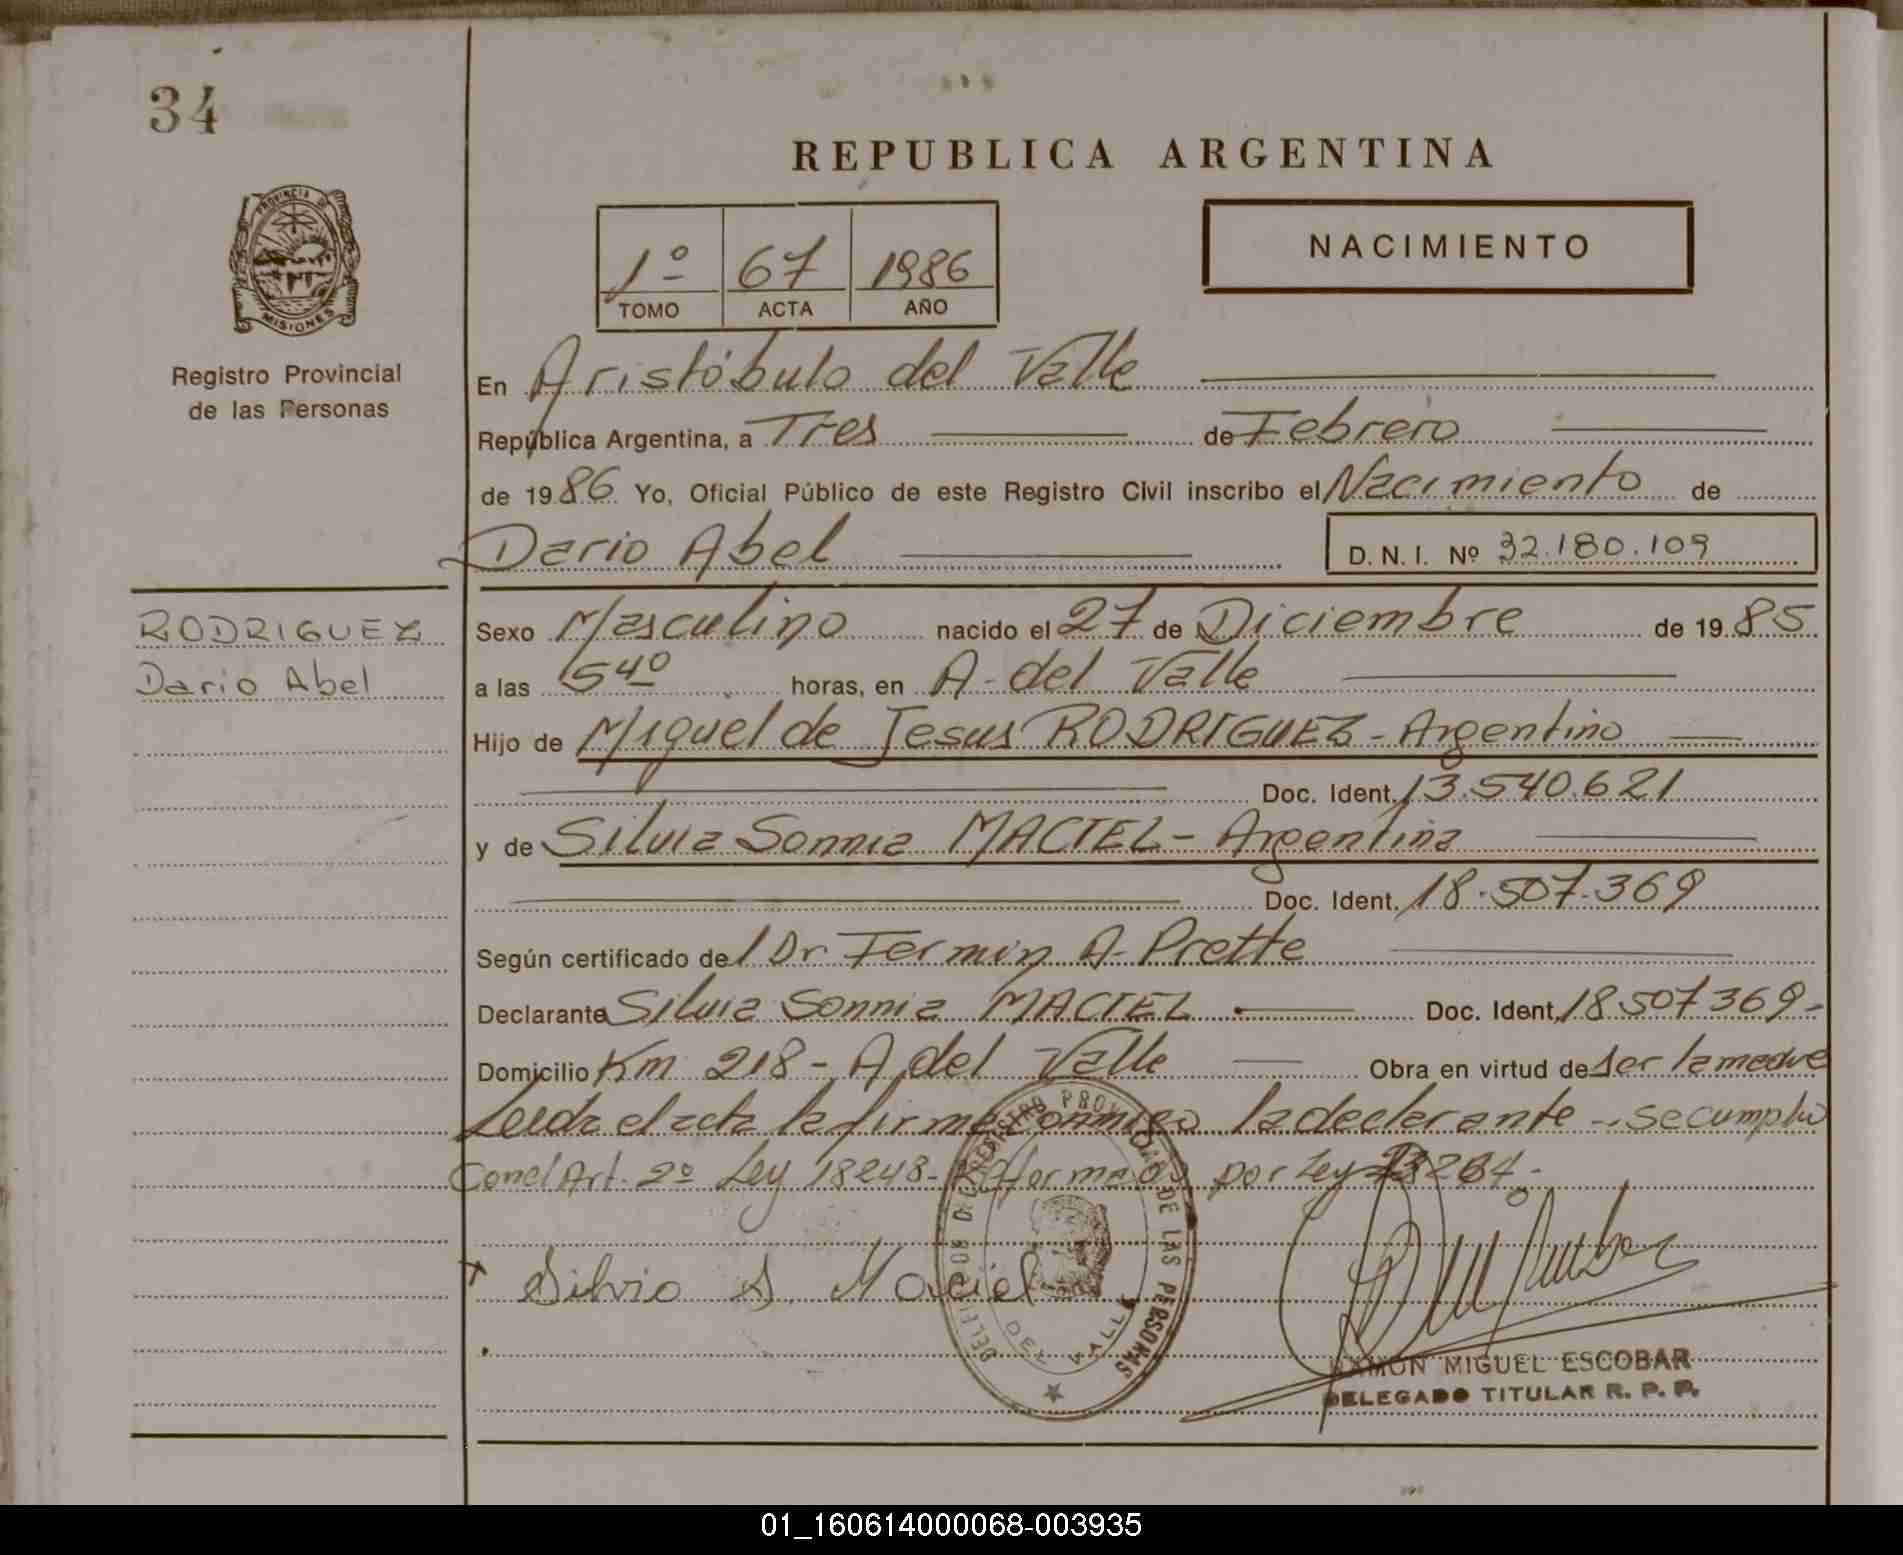 34
REPUBLICA ARGENTINA
PROVINCIA DE
MISIONES
Registro Provincial
de las Personas
1º 67 1986
TOMO ACTA AÑO
NACIMIENTO
En Aristóbulo del Valle
República Argentina, a Tres de Febrero
de 1986 Yo, Oficial Público de este Registro Civil inscribo el Nacimiento de
Dario Abel D. N. I. Nº 32.180.109
RODRIGUEZ
Dario Abel
Sexo Masculino nacido el 27 de Diciembre de 1985
a las 5 40 horas, en A. del Valle
Hijo de Miguel de Jesus RODRIGUEZ - Argentino
Doc. Ident. 13.540.621
y de Silvia Sonnia MACIEL - Argentina
Doc. Ident. 18.507.369
Según certificado del Dr Fermin A. Prette
Declarante Silvia Sonnia MACIEL Doc. Ident. 18507369-
Domicilio Km 218 - A del Valle Obra en virtud de ser la madre
Leida el acta la firma conmigo la declarante - se cumplió
Con el Art. 2º Ley 18248- por Ley 23264.
Silvia S. Maciel
REGISTRO PROVINCIAL DE LAS PERSONAS
DEL VALLE
RAMON MIGUEL ESCOBAR
DELEGADO TITULAR R. P. P.
01_160614000068-003935